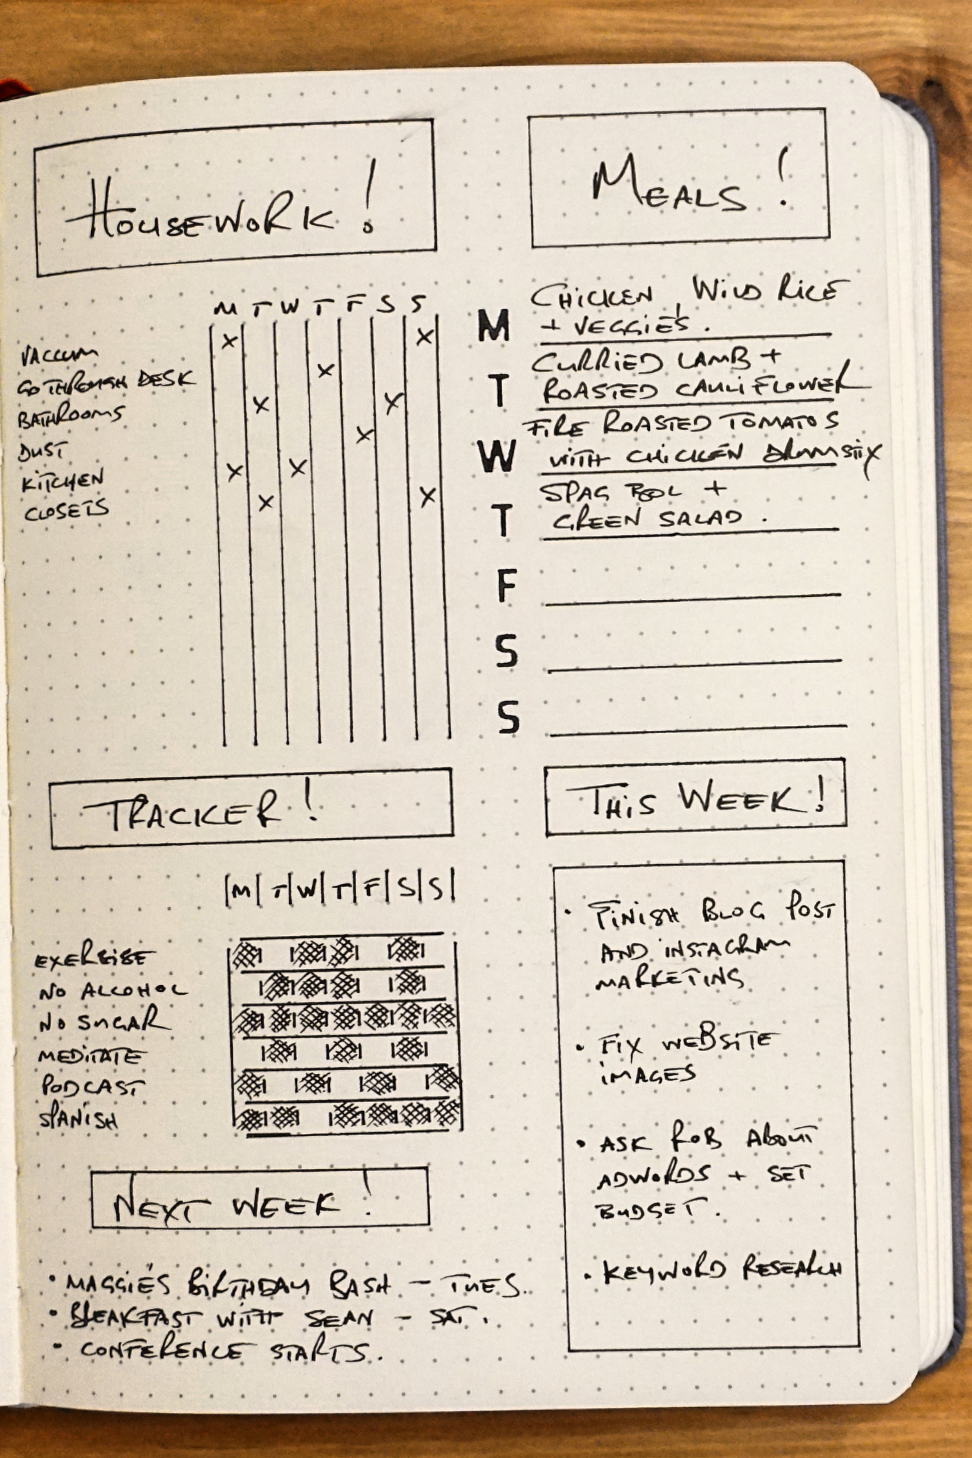 HOUSEWORK!
M T W T F S S
VACCUM X X
GO THROUGH DESK X
BATHROOMS X X
DUST X
KITCHEN X X
CLOSETS X X
MEALS!
M CHICKEN, WILD RICE
+ VEGGIES.
T CURRIED LAMB +
ROASTED CAULIFLOWER
W FIRE ROASTED TOMATOS
WITH CHICKEN DRUMSTIX
T SPAG BOL +
GREEN SALAD.
F
S
S
TRACKER!
|M|T|W|T|F|S|S|
EXERSISE
NO ALCOHOL
NO SUGAR
MEDITATE
PODCAST
SPANISH
THIS WEEK!
• FINISH BLOG POST
AND INSTAGRAM
MARKETING
• FIX WEBSITE
IMAGES
• ASK ROB ABOUT
ADWORDS + SET
BUDGET.
• KEYWORD RESEARCH
NEXT WEEK!
• MAGGIE'S BIRTHDAY BASH – TUES.
• BREAKFAST WITH SEAN – SAT.
• CONFERENCE STARTS.